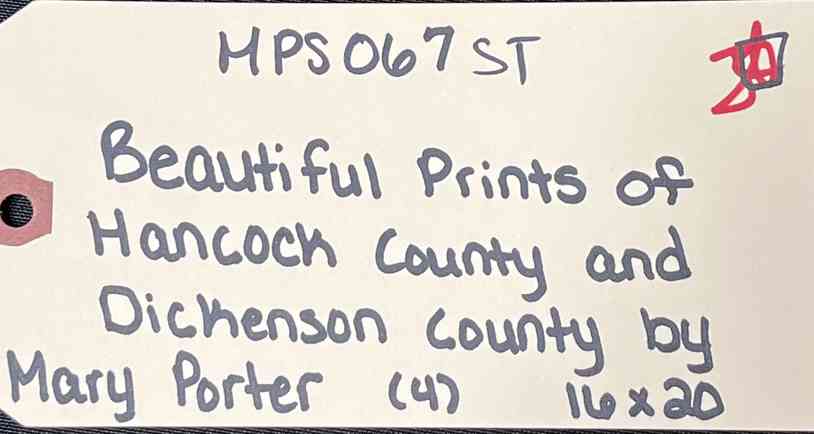 HPS067ST
Beautiful Prints of
Hancock County and
Dickenson County by
Mary Porter (4) 16x20